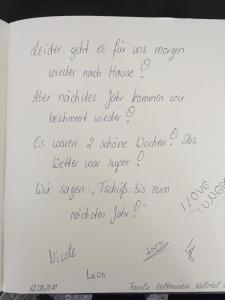 Leider geht es für uns morgen
wieder nach Hause!
Aber nächstes Jahr kommen wir
bestimmt wieder!
Es waren 2 schöne Wochen! Das
Wetter war super!
Wir sagen: „Tschüß, bis zum
nächsten Jahr!“
I LOVE
Nicole
Leon
Familie